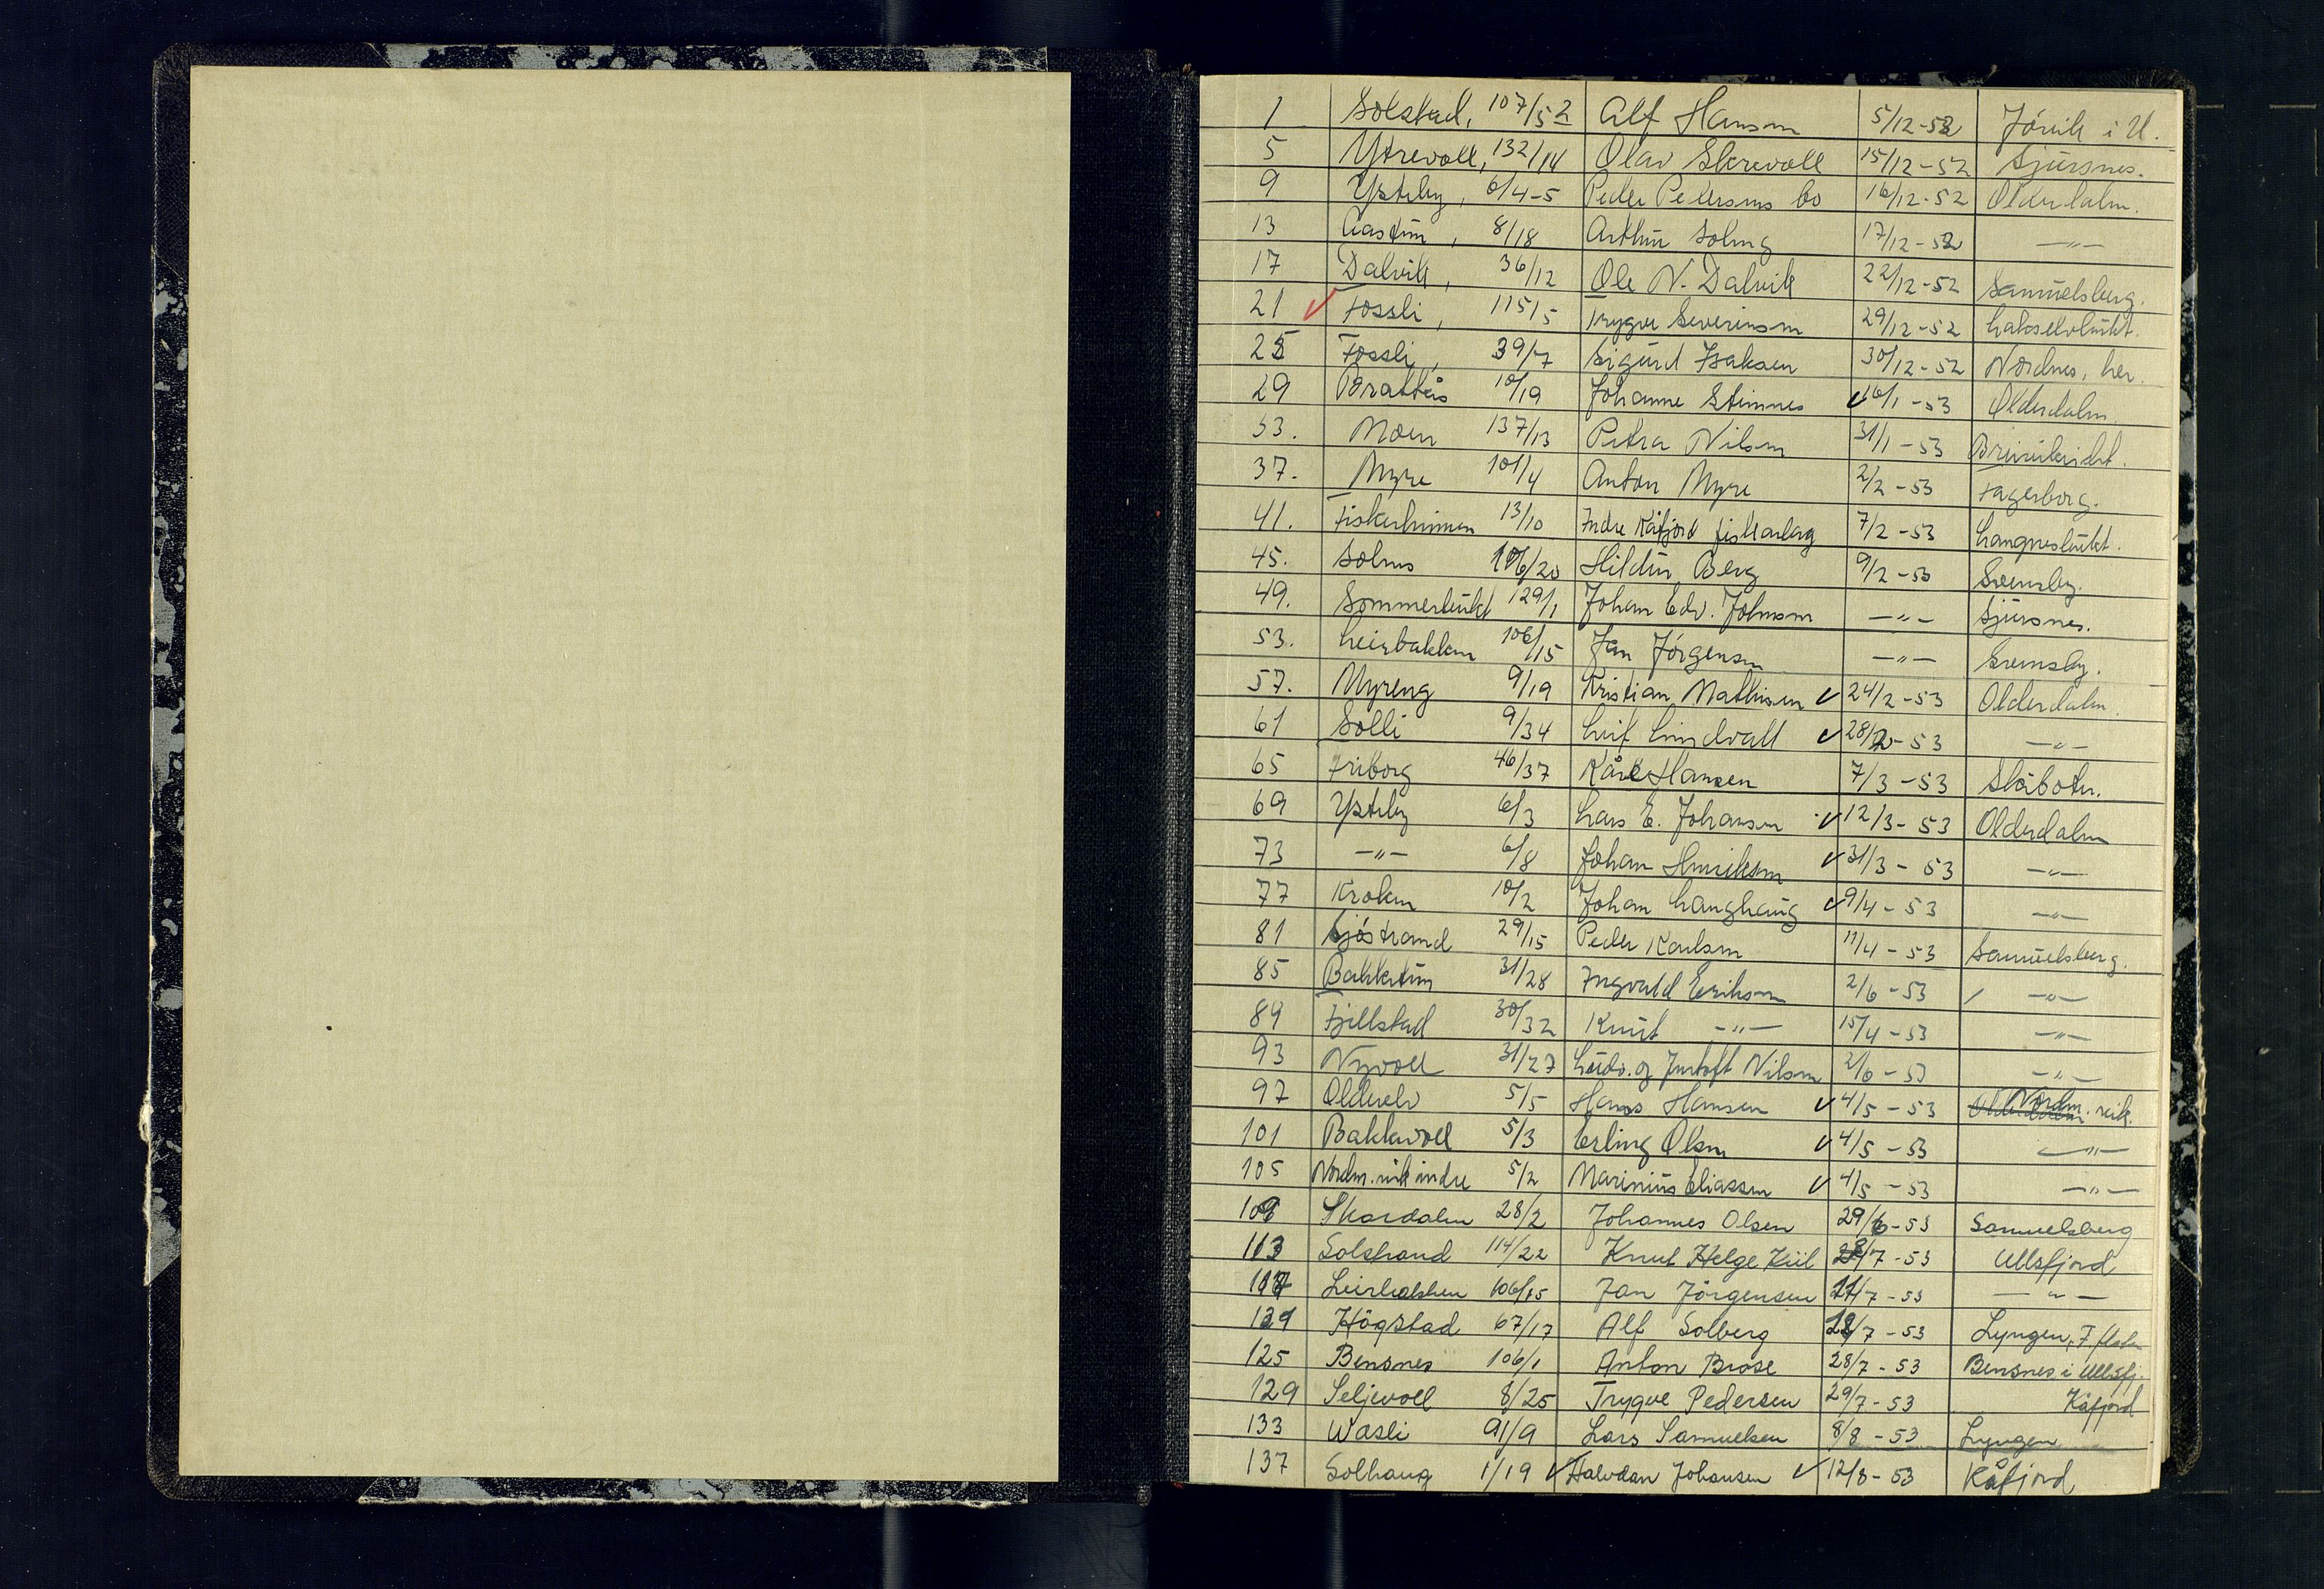 1 Solstad, 107/52 Alf Hansen 5/12-52 Jövik i U.
5 Ytrevoll, 132/14 Olav Skrevoll 15/12-52 Sjursnes.
9 Ysteby, 6/4-5 Peder Pedersens bo 16/12-52 Olderdalen.
13 Aastun, 8/18 Arthur Soleng 17/12-52 —"—
17 Dalvik, 36/12 Ole N. Dalvik 22/12-52 Samuelsberg.
21 ✓ Fossli, 115/5 Trygve Severinsen 29/12-52 Lakselvbukt.
25 Fossli, 39/7 Sigurd Isaksen 30/12-52 Nordnes, her.
29 Brattås 10/19 Johanne Steinnes ✓ 16/1-53 Olderdalen.
33. Moen 137/13 Petra Nilsen 31/1-53
37. Myre 101/4 Anton Myre 2/2-53 Fagerborg.
41. Fiskerheimen 13/10 Indre Kåfjord fiskarlag 7/2-53 Langneslukt.
45. Solnes 106/20 Hildur Berg 9/2-53 Svensby.
49. Sommerbukt 129/1 Johan Edv. Johnsen —"— Sjursnes.
53. Leirbakken 106/15 Jan Jörgensen —"— Svensby.
57. Myreng 9/19 Kristian Mathisen ✓ 24/2-53 Olderdalen.
61 Solli 9/34 Leif Lindvall ✓ 28/2-53 —"—
65 Friborg 46/37 Kåre Hansen 7/3-53 Skibotn.
69 Ysteby 6/3 Lars E. Johansen ✓ 12/3-53 Olderdalen
73 —"— 6/8 Johan Henriksen ✓ 31/3-53 —"—
77 Kroken 10/2 Johan Langhaug ✓ 9/4-53 —"—
81 Sjöstrand 29/15 Peder Karlsen 11/4-53 Samuelsberg.
85 Bakketun 31/28 Ingvald Eriksen 2/6-53 —"—
89 Fjellstad 30/32 Knut —"— 15/4-53 —"—
93 Nyvoll 31/27 Ludv. og Nilsen 2/6-53 —"—
97 Olderelv 5/5 Hans Hansen ✓ 4/5-53 Nordm. vik.
101 Bakkevoll 5/3 Erling Olsen ✓ 4/5-53 —"—
105 Nordm. vik indre 5/2 Marinius Eliassen ✓ 4/5-53 —"—
109 Skardalen 28/2 Johannes Olsen 29/6-53 Samuelsberg
113 Solstrand 114/22 Knut Helge Kiil /7-53 Ullsfjord
117 Leirbakken 106/15 Jan Jörgensen /7-53 —"—
Högstad 67/17 Alf Solberg /7-53 Lyngen,
125 Bensnes 106/1 Anton Brose 28/7-53 Bensnes i Ullsfj.
129 Seljevoll 8/25 Trygve Pedersen 29/7-53 Kåfjord
133 Wasli 91/9 Lars Samuelsen 8/8-53 Lyngen
137 Solhaug 1/19 ✓ Halvdan Johansen ✓ 12/8-53 Kåfjord